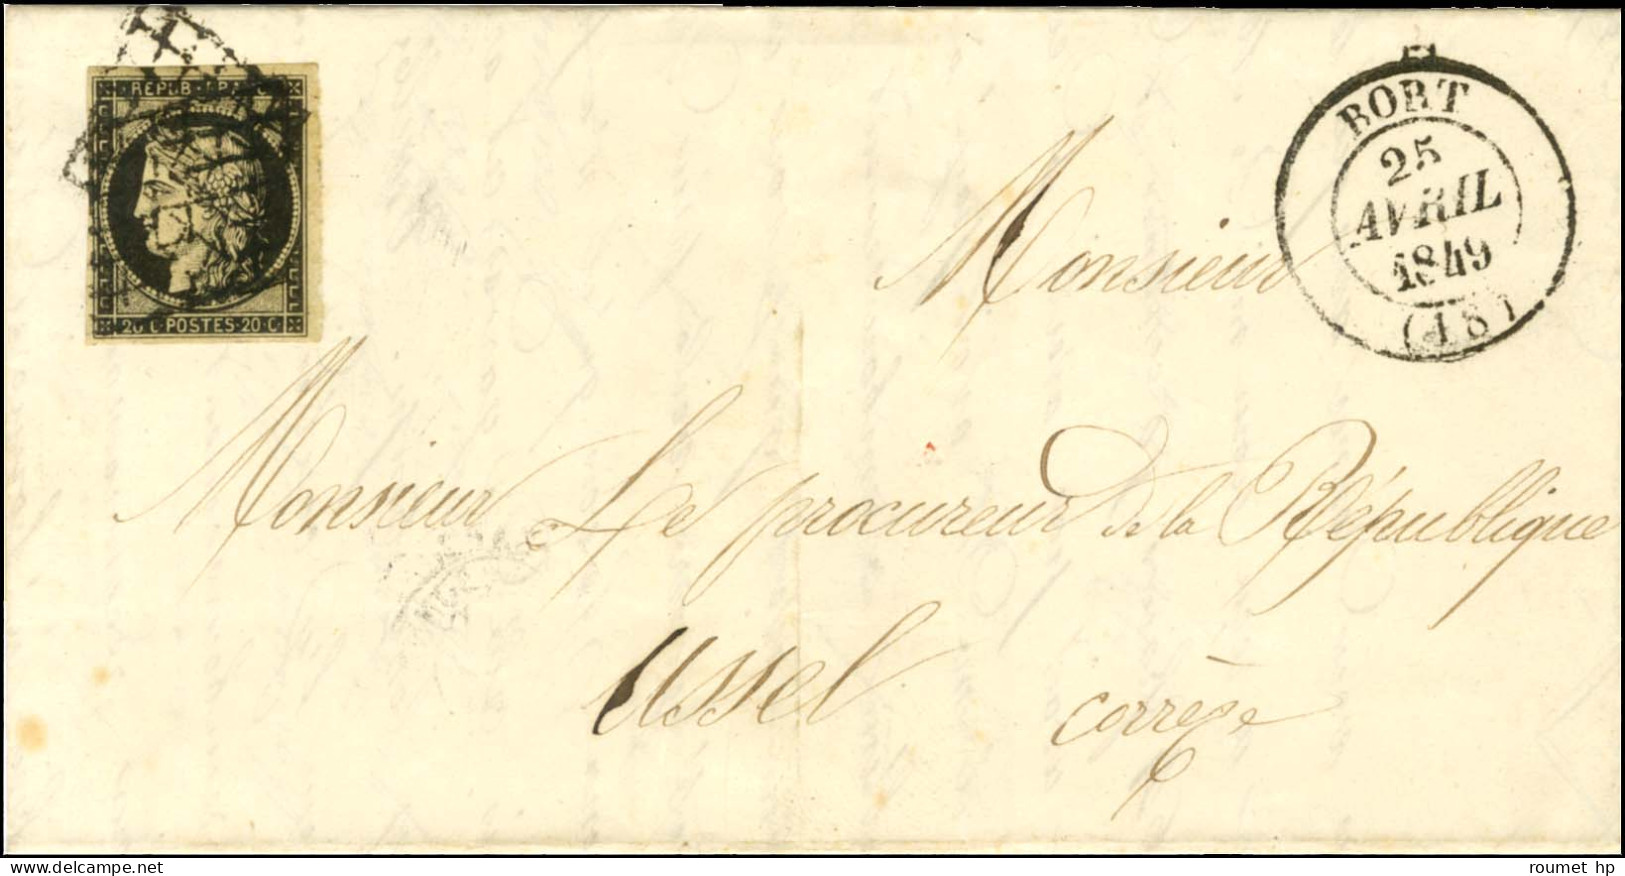 REPUB FRANC
20 C POSTES 20 C
BORT
25
AVRIL
1849
(18)
Monsieur
Monsieur Le procureur de la République
Ussel corrèze
www.delcampe.net
roumet hp